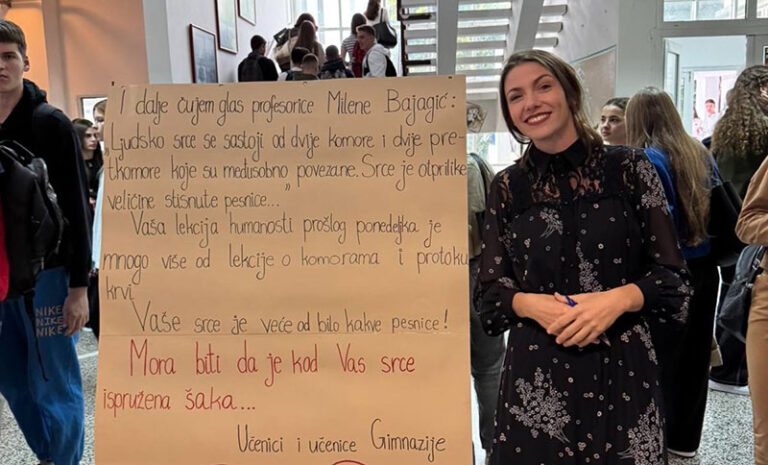 "I dalje čujem glas profesorice Milene Bajagić:
"Ljudsko srce se sastoji od dvije komore i dvije pre-
tkomore koje su međusobno povezane. Srce je otprilike
veličine stisnute pesnice..."
Vaša lekcija humanosti prošlog ponedeljka je
mnogo više od lekcije o komorama i protoku
krvi.
Vaše srce je veće od bilo kakve pesnice!
Mora biti da je kod Vas srce
ispružena šaka...
Učenici i učenice Gimnazije
NIKE
NIKE
NIKE